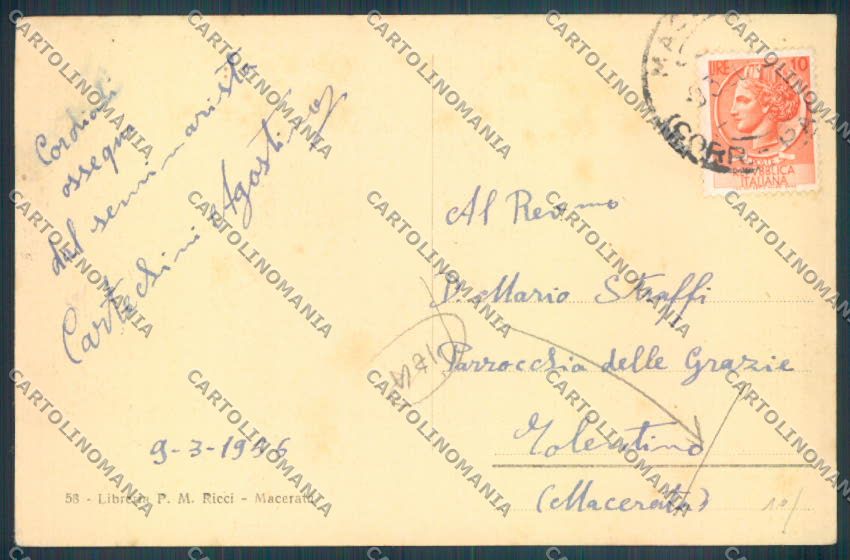 Cordiali
ossequi
dal seminarista
Cartechini Agostino
9-3-1956
58 - Libreria P. M. Ricci - Macerata
LIRE 10
REPUBBLICA
ITALIANA
Al Rev.mo
D. Mario Straffi
Parrocchia delle Grazie
Tolentino
(Macerata)
CARTOLINOMANIA